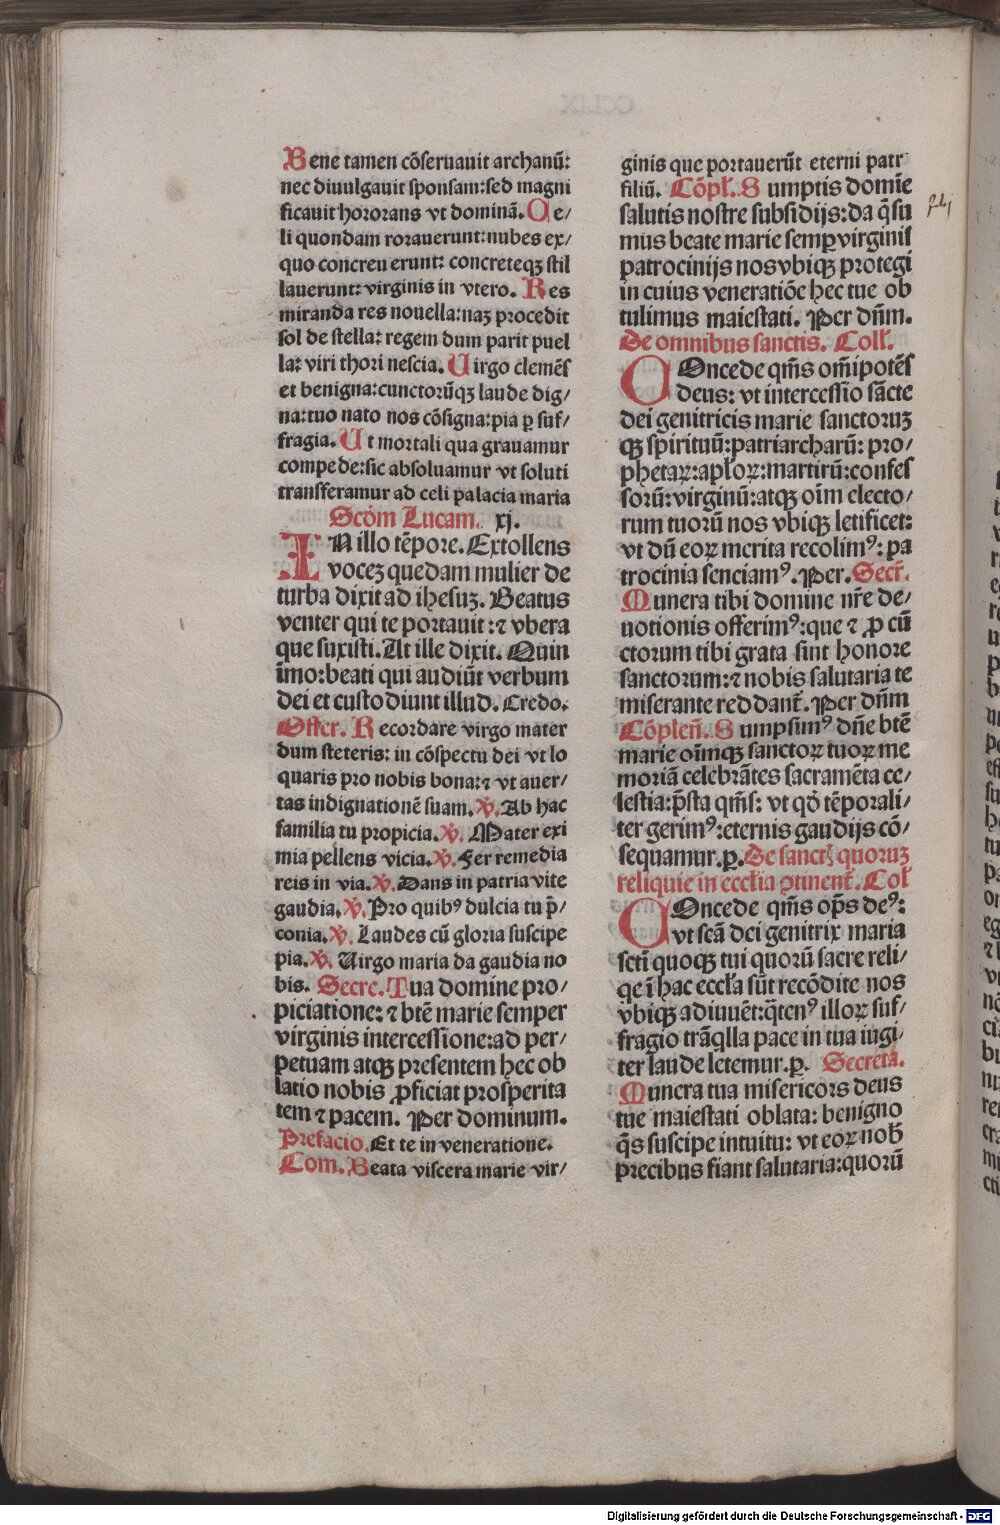 Bene tamen cõseruauit archanũ:
nec diuulgauit sponsam:sed magni
ficauit hororans vt dominã. Ce/
li quondam rorauerunt:nubes ex/
quo concreu erunt: concreteqꝫ stil
lauerunt: virginis in vtero. Res
miranda res nouella:naꝫ procedit
sol de stella: regem dum parit puel
la: viri thori nescia. Uirgo clemẽs
et benigna:cunctorũqꝫ laude dig/
na:tuo nato nos cõsigna:pia ꝑ suf/
fragia. Ut mortali qua grauamur
compede:sic absoluamur vt soluti
transferamur ad celi palacia maria
Scd̃m Lucam. xj.
IN illo tẽpore. Extollens
voceꝫ quedam mulier de
turba dixit ad ihesuꝫ. Beatus
venter qui te portauit:⁊ vbera
que suxisti. At ille dixit. Quin
ĩmo:beati qui audiũt verbum
dei et custodiunt illud. Credo.
Offer. Recordare virgo mater
dum steteris: in cõspectu dei vt lo
quaris pro nobis bona:⁊ vt auer/
tas indignationẽ suam. ℣. Ab hac
familia tu propicia. ℣. Mater exi
mia pellens vicia. ℣. Fer remedia
reis in via. ℣. Dans in patria vite
gaudia. ℣. Pro quibꝰ dulcia tu p̃/
conia. ℣. Laudes cũ gloria suscipe
pia. ℣. Uirgo maria da gaudia no
bis. Secre. Tua domine pro/
piciatione: ⁊ btẽ marie semper
virginis intercessione:ad per/
petuam atqꝫ presentem hec ob
latio nobis ꝓficiat prosperita
tem ⁊ pacem. Per dominum.
Prefacio. Et te in veneratione.
Com. Beata viscera marie vir/
ginis que portauerũt eterni patr
filiũ. Cõpł. Sumptis domĩe
salutis nostre subsidijs:da q̃su
mus beate marie semꝑ virginis
patrocinijs nos vbiqꝫ protegi
in cuius veneratiõe hec tue ob
tulimus maiestati. Per dñm.
De omnibus sanctis. Coll.
COncede qm̃s om̃ipotẽs
deus: vt intercessio sãcte
dei genitricis marie sanctoruꝫ
qꝫ spirituũ:patriarcharũ: pro/
phetaꝝ:apłoꝝ:martirũ:confes
sorũ:virginũ:atqꝫ oĩm electo/
rum tuorũ nos vbiqꝫ letificet:
vt dũ eoꝝ merita recolimꝰ: pa
trocinia senciamꝰ. Per. Secr̃.
Munera tibi domine nr̃e de/
uotionis offerimꝰ:que ⁊ ꝓ cũ
ctorum tibi grata sint honore
sanctorum:⁊ nobis salutaria te
miserante reddant̃. Per dñm
Cõpleñ. Sumpsimꝰ dñe btẽ
marie oĩmqꝫ sanctoꝝ tuoꝝ me
moriã celebrãtes sacramẽta ce/
lestia:p̃sta qm̃s: vt qd̃ tẽporali/
ter gerimꝰ:eternis gaudijs cõ/
sequamur. ꝑ. De sanctꝭ quoruꝫ
reliquie in eccłia ꝯtinent̃. Coł
COncede qm̃s op̃s deꝰ:
vt scã dei genitrix maria
scti quoqꝫ tui quorũ sacre reli/
qe ĩ hac eccła sũt recõdite nos
vbiqꝫ adiuuẽt:q̃tenꝰ illoꝝ suf/
fragio trãq̃lla pace in tua iugi/
ter laude letemur. ꝑ. Secreta.
Munera tua misericors deus
tue maiestati oblata: benigno
q̃s suscipe intuitu: vt eoꝝ nob̃
precibus fiant salutaria:quorũ
Digitalisierung gefördert durch die Deutsche Forschungsgemeinschaft - DFG